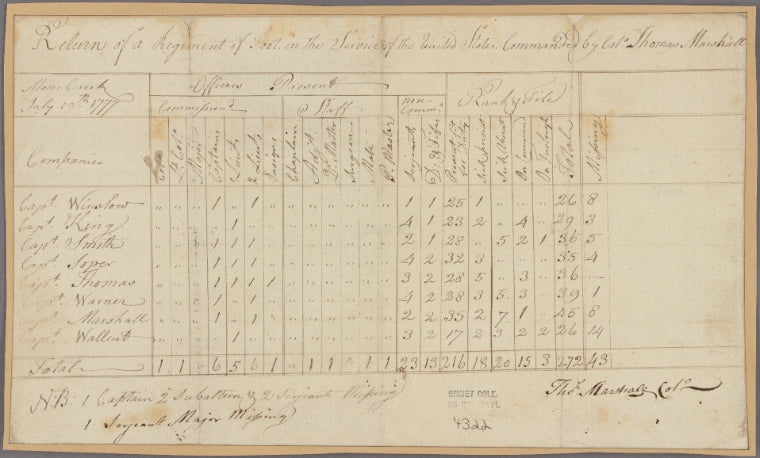 Return of a Regiment of Foot in the Service of the United States Commanded by Col.º Thomas Marshall
Moses Creek
July 17th 1777
Officers Present
Commission.d
Staff
non-Comm.d
Rank & File
Companies
Col.º
Lt Col.º
Major
Captains
Lieuts
2 Lieuts
Ensigns
Chaplain
Adjt
Qr Master
Surgeon
Mate
P. Master
Sergeants
D. & Fifes
Present fit for Duty
Sick Present
Sick Absent
On Command
On Furlough
Total
Missing
Capt. Winslow " " " 1 " 1 " " " " " " " 1 1 25 1 " " " 26 8
Capt. King " " " " 1 " " " " " " " " 4 1 23 2 " 4 " 29 3
Capt. Smith " " " 1 1 1 " " " " " " " 2 1 28 " 5 2 1 36 5
Capt. Soper " " " 1 1 1 " " " " " " " 4 2 32 3 " " " 35 4
Capt. Thomas " " " 1 1 1 1 " " " " " " 3 2 28 5 " 3 " 36 —
Capt. Warner " " " 1 " 1 " " " " " " " 4 2 28 3 5 3 " 39 1
Capt. Marshall " " " 1 " 1 " " " " " " " 2 2 35 2 7 1 " 45 8
Capt. Wallcut " " " " 1 " " " " " " " " 3 2 17 2 3 2 2 26 14
Total 1 1 " 6 5 6 1 " 1 1 " 1 1 23 13 216 18 20 15 3 272 43
N.B: 1 Captain 2 Subalterns & 2 Serjeants Missing
1 Serjeant Major Missing
Tho.s Marshall Col.º
EMMET COLL
4322